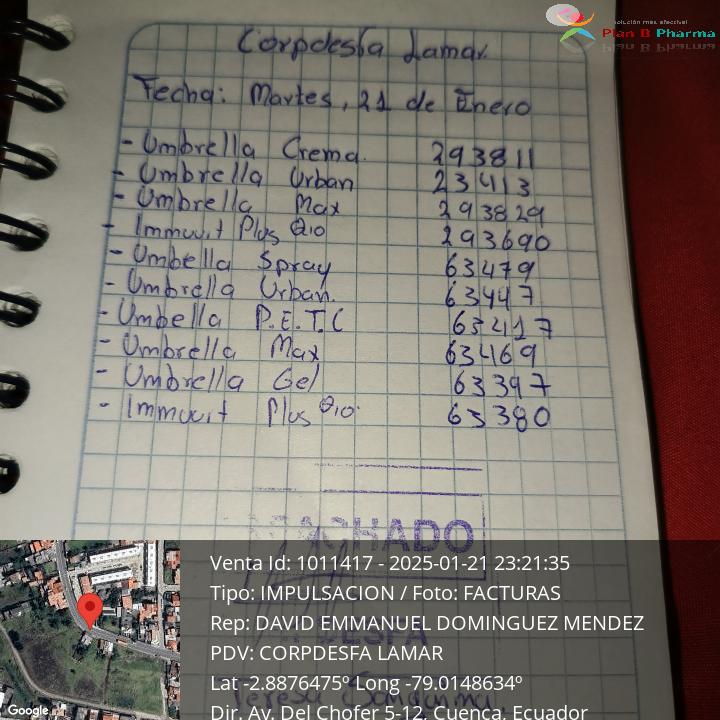 solución más efectiva!
Plan B Pharma
Corpdesfa Lamar.
Fecha: Martes, 21 de Enero
- Umbrella Crema. 293811
- Umbrella Urban 23413
- Umbrella Max 293829
- Immuvit Plus Q10 293690
- Umbella Spray 63479
- Umbrella Urban. 63447
- Umbella P.E.T.C 63417
- Umbrella Max 63469
- Umbrella Gel 63397
- Immuvit Plus Q10. 63380
MACHADO
Venta Id: 1011417 - 2025-01-21 23:21:35
Tipo: IMPULSACION / Foto: FACTURAS
Rep: DAVID EMMANUEL DOMINGUEZ MENDEZ
PDV: CORPDESFA LAMAR
Lat -2.8876475º Long -79.0148634º
Dir. Av. Del Chofer 5-12, Cuenca, Ecuador
Google